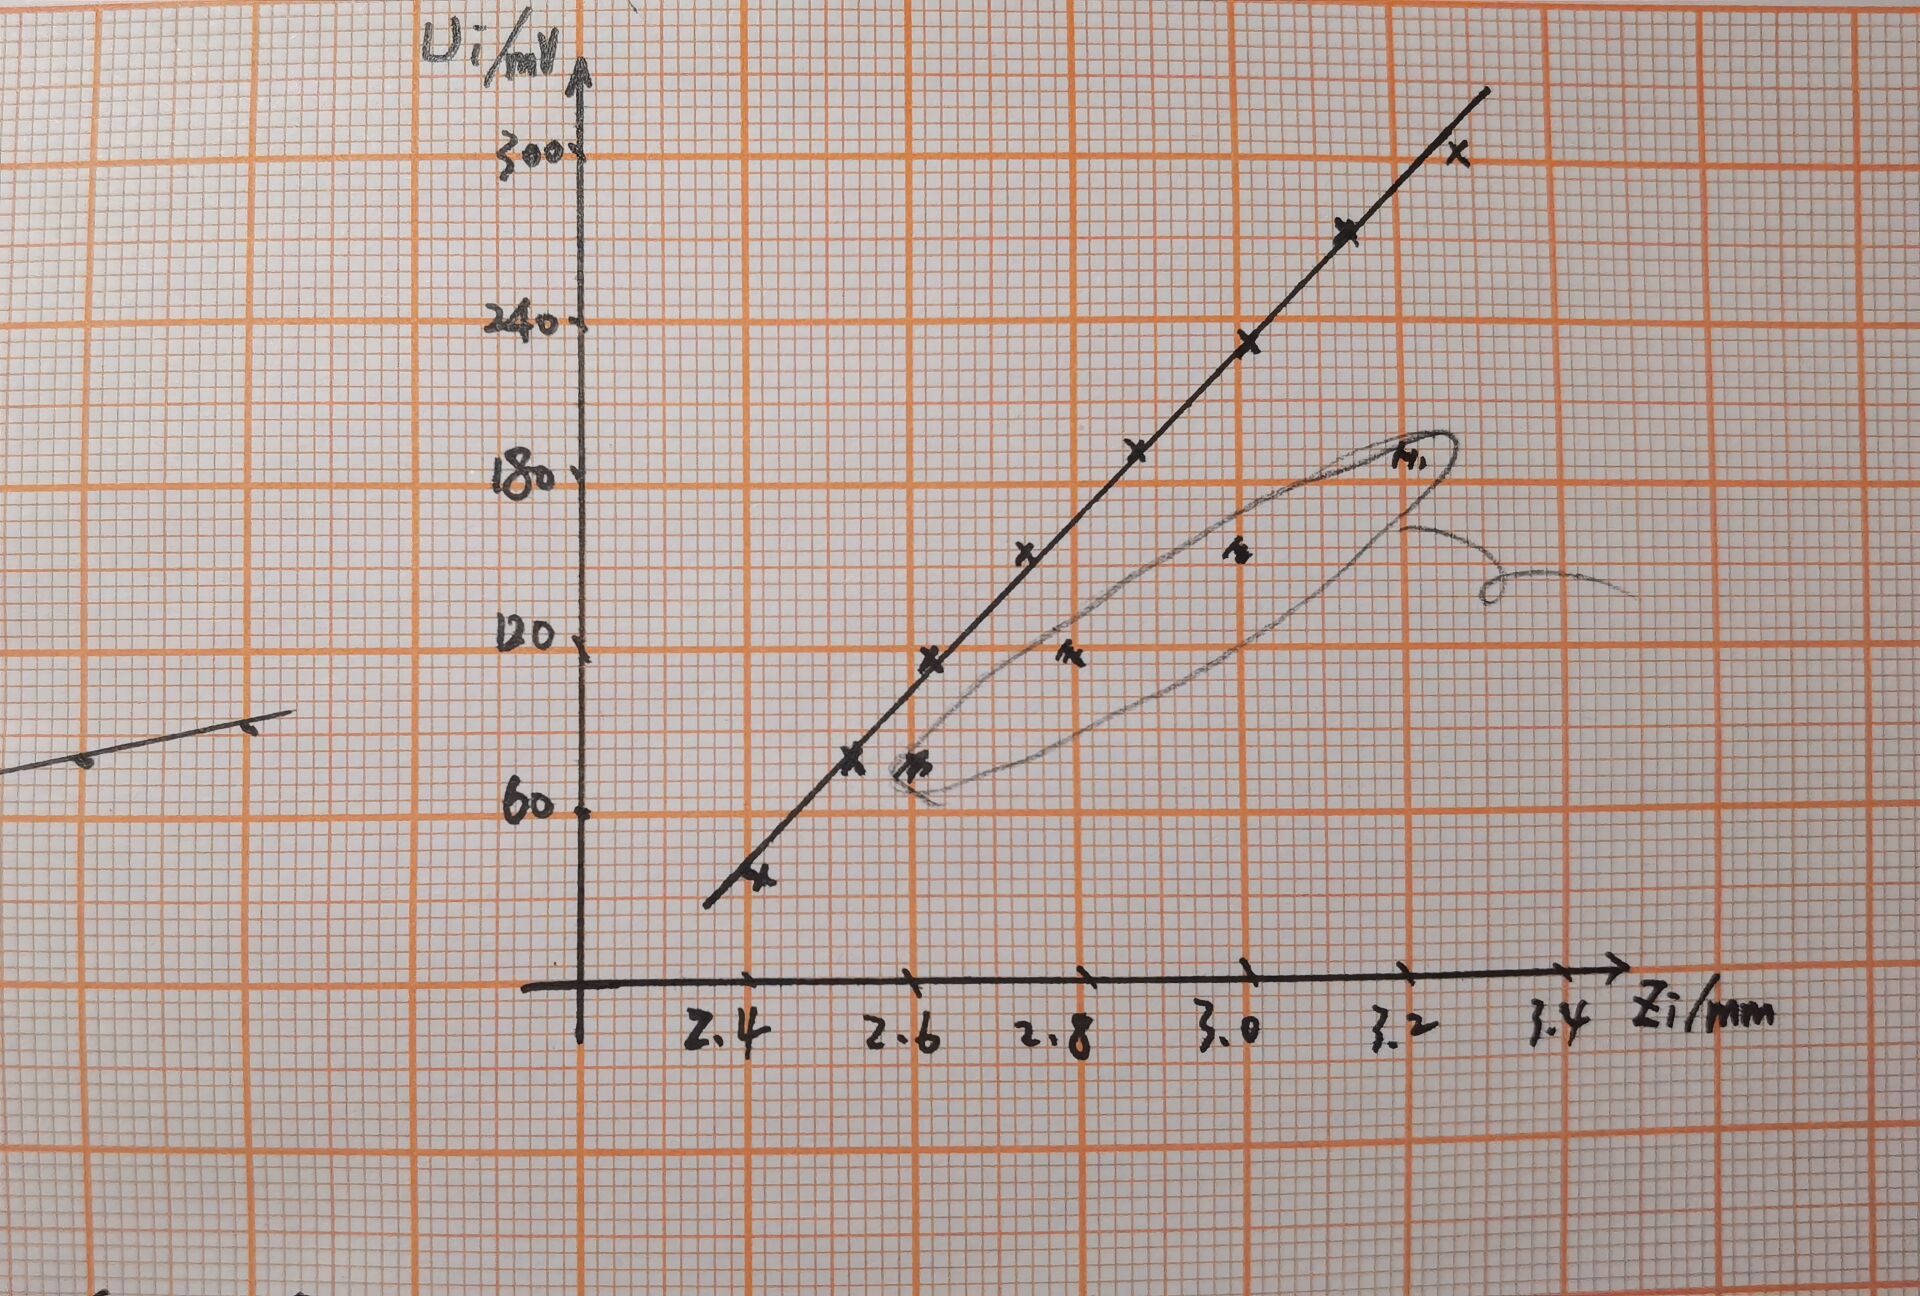 Ui/mV
300
240
180
120
60
2.4 2.6 2.8 3.0 3.2 3.4 Zi/mm